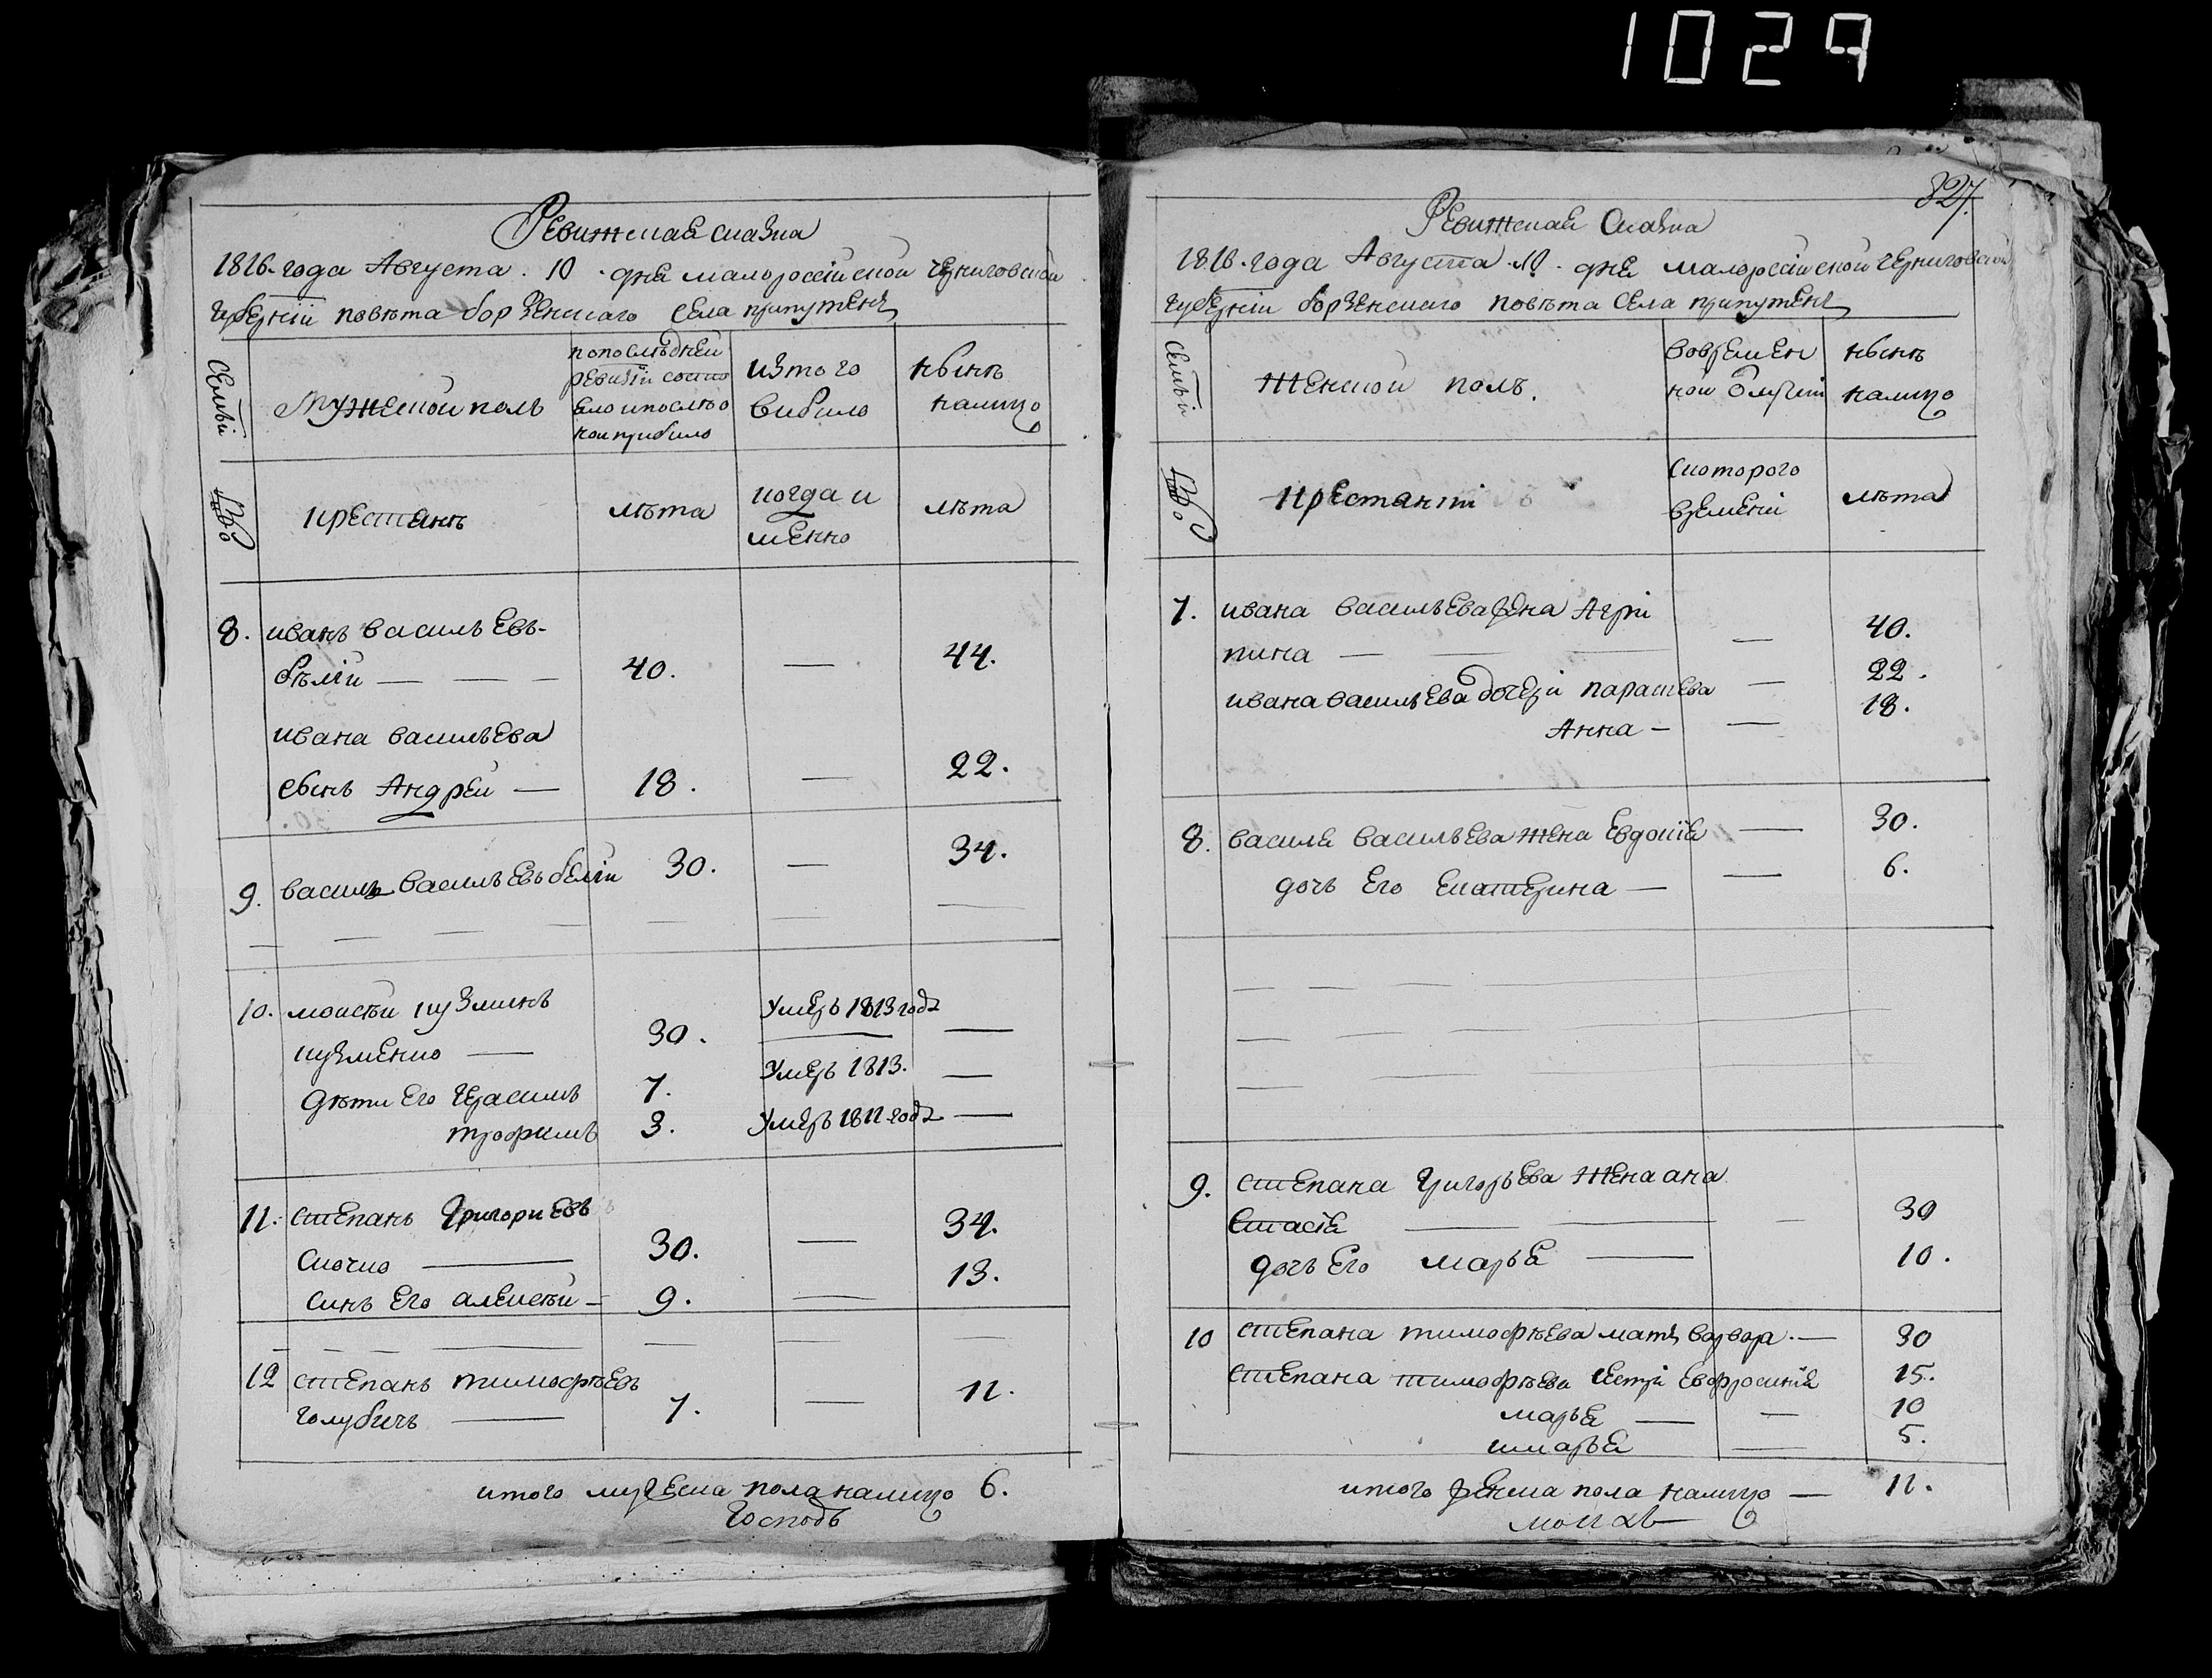 1029
Ревижская сказка
1816. года Августа . 10 . дня малоросіиской черниговской
губерніи повѣта борзенского села припутенъ
Семьи
Мужескои полъ
попослѣдней
ревизіи состо
яло ипослѣо
нои прибило
изтого
вибило
нынѣ
налицо
крестянъ
лѣта
когда и
мѣнно
лѣта
8. иванъ василь Евъ-
бѣлій — — — 40. — 44.
ивана васильева
сынъ Андрей — 18. — 22.
9. василь василь Евъ белій 30. — 34.
10. моисѣй кузминъ
кузменко — 30. Умеръ 1813 годъ —
дѣти Его герасимъ 7. Умеръ 1813. —
трофимъ 3. Умеръ 1812 годъ —
11. степанъ Григориевъ
скочко — 30. — 34.
синъ Его алексѣй — 9. — 13.
12 степанъ тимофѣевъ
голубичъ — 7. — 11.
итого мужеска пола налицо 6.
Господъ
327.
Ревижская Сказка
1816. года Августа 10. дня малоросіиской черниговской
губерніи борзенского повѣта села припутенъ
Семьи
Женской полъ.
вовремен
нои отлучкі
нынѣ
налицо
крестянки
скоторого
времени
лѣта
7. ивана васильева жена Агрі
пина — — — — 40.
ивана васильева дочери параскева — 22.
Анна — — 18.
8. василя васильева жена Евдокія — 30.
дочь Его Екатерина — — 6.
9. степана григорьева жена ана
стасія — — — 30
дочь Его марья — 10.
10 степана тимофѣева мать варвара. — 30
степана тимофѣева сестри Евфросинія 15.
марья — — 10
имарья — 5.
итого женска пола налицо — 11.